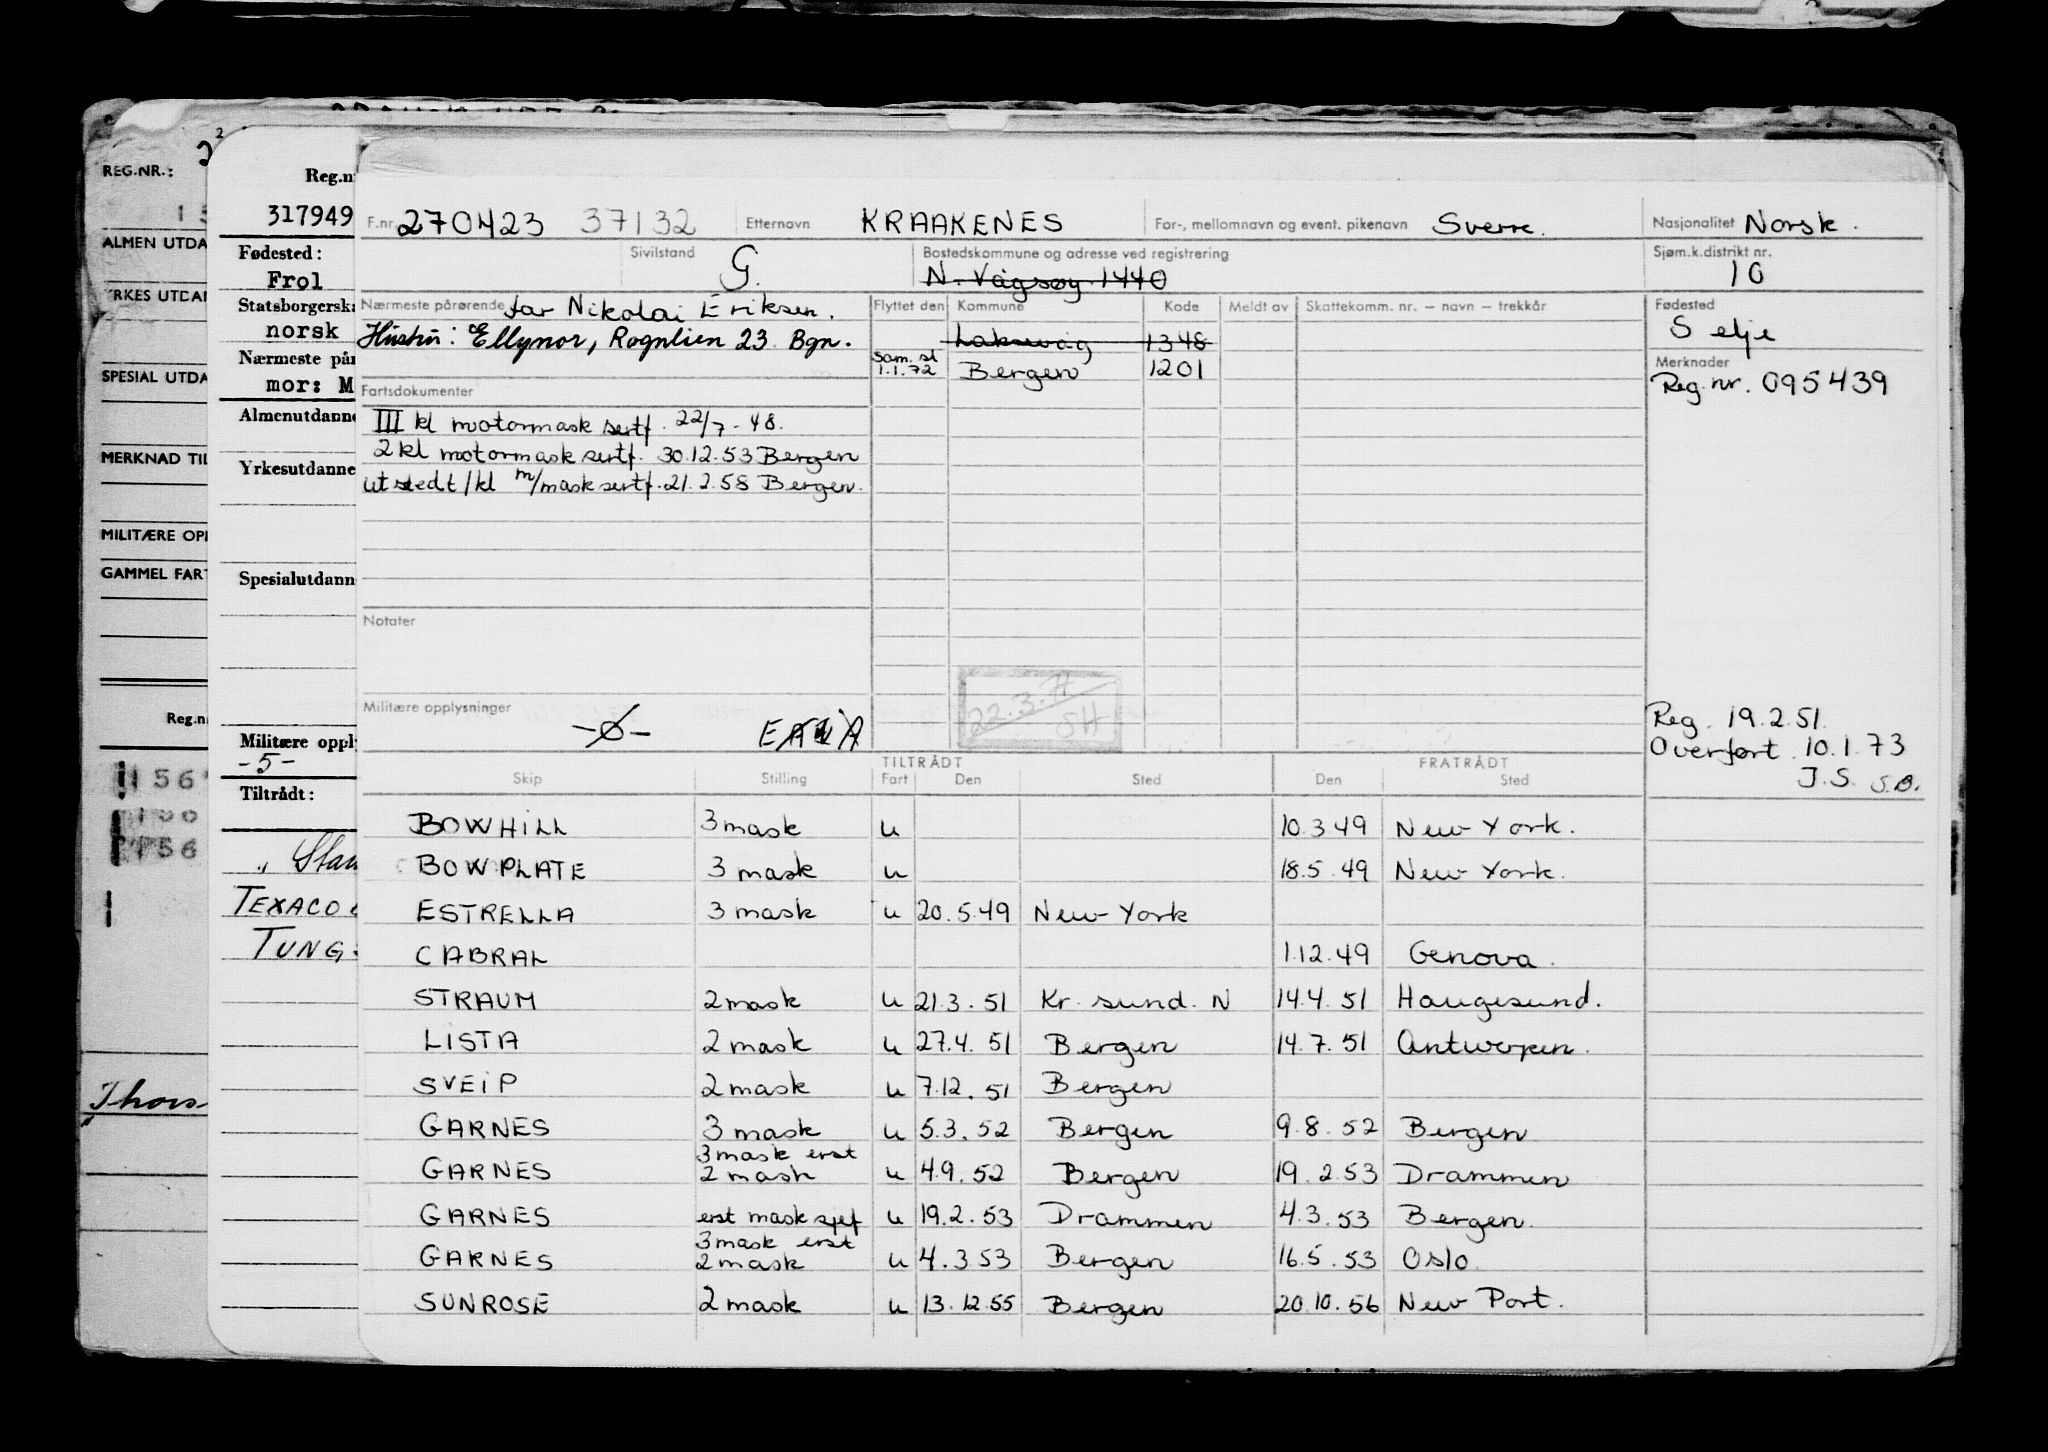 REG.NR.:
ALMEN UTDA
YRKES UTDAN
SPESIAL UTDA
MERKNAD TIL
MILITÆRE OPP
GAMMEL FART
Reg.n
156
Thors
Reg.n
317949
Fødested:
Frol
Statsborgerska
norsk
Nærmeste pår
mor: M
Almenutdanne
Yrkesutdanne
Spesialutdann
Militære opply
-5-
Tiltrådt:
TEXACO
TUNG
F.nr 270423 37132 Etternavn KRAAKENES For-, mellomnavn og event. pikenavn Sverre. Nasjonalitet Norsk.
Sivilstand G. Bostedskommune og adresse ved registrering Sjøm.k.distrikt nr.
N. Vågsøy 1440 10
Nærmeste pårørende far Nikolai Eriksen. Flyttet den Kommune Kode Meldt av Skattekomm. nr. – navn – trekkår Fødested
Hustru: Ellynor, Rognlien 23 Bgn. Laksevåg 1348 Selje
sam. sl
1.1.72 Bergen 1201 Merknader
Reg. nr. 095439
Fartsdokumenter
III kl motormask sertf. 22/7-48.
2 kl motormask sertf. 30.12.53 Bergen
utstedt 1 kl m/mask sertf. 21.2.58 Bergen.
Notater
22.3.74
SH
Militære opplysninger -Ø-
Reg. 19.2.51.
Overført 10.1.73
J.S. S.B.
TILTRÅDT FRATRÅDT
Skip Stilling Fart Den Sted Den Sted
BOWHILL 3 mask u 10.3.49 New York.
BOWPLATE 3 mask u 18.5.49 New York.
ESTRELLA 3 mask u 20.5.49 New York
CABRAL 1.12.49 Genova.
STRAUM 2 mask u 21.3.51 Kr. sund. N 14.4.51 Haugesund.
LISTA 2 mask u 27.4.51 Bergen 14.7.51 Antwerpen.
SVEIP 2 mask u 7.12.51 Bergen
GARNES 3 mask u 5.3.52 Bergen 9.8.52 Bergen
3 mask erst
GARNES 2 mask u 4.9.52 Bergen 19.2.53 Drammen
GARNES erst mask sjef u 19.2.53 Drammen 4.3.53 Bergen.
3 mask erst
GARNES 2 mask u 4.3.53 Bergen 16.5.53 Oslo.
SUNROSE 2 mask u 13.12.55 Bergen 20.10.56 New Port.